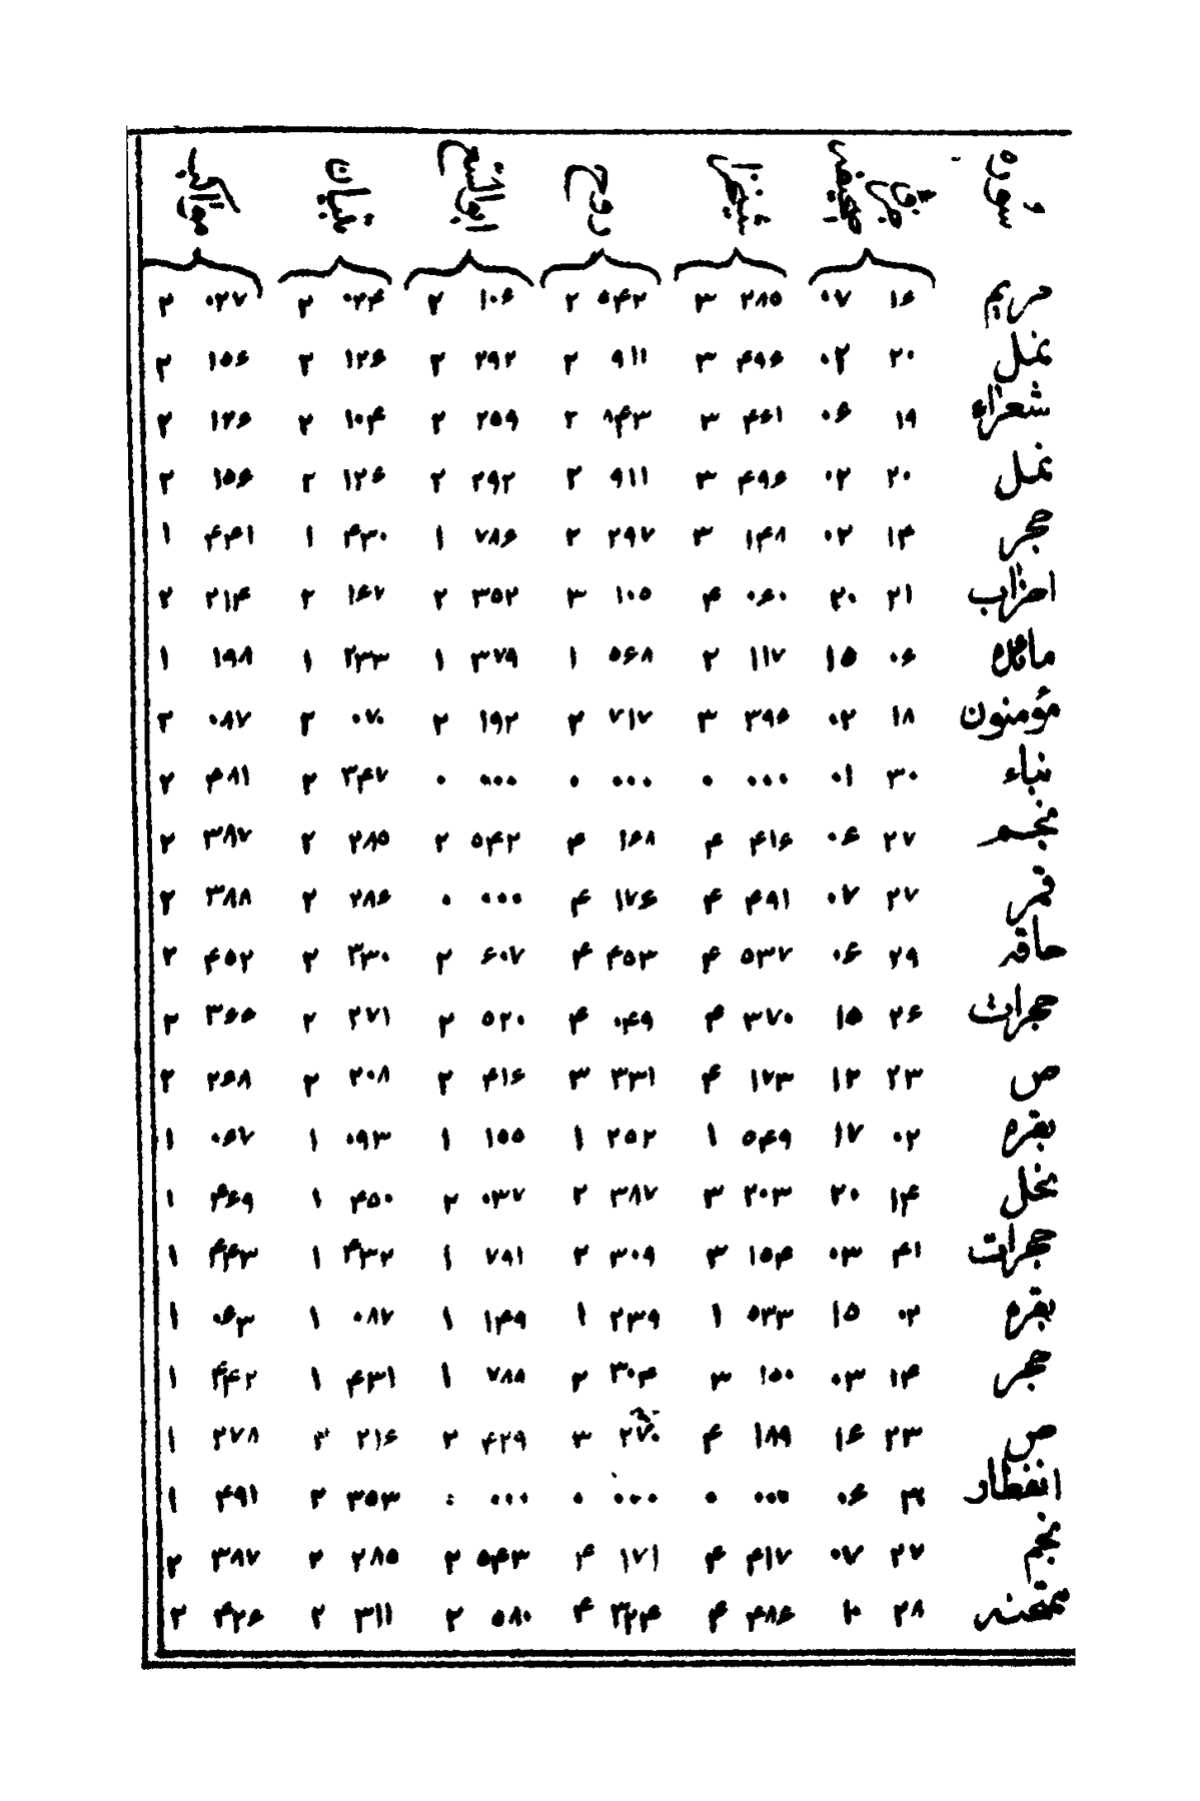 سوره روح ابوالفتوح تبیان
مریم ۱۶ ۰۷ ۲۸۵ ۳ ۵۴۲ ۲ ۱۰۶ ۲ ۰۲۴ ۲ ۰۲۷ ۲
نمل ۲۰ ۰۲ ۴۹۶ ۳ ۹۱۱ ۲ ۲۹۲ ۲ ۱۲۶ ۲ ۱۵۶ ۲
شعراء ۱۹ ۰۶ ۴۶۱ ۳ ۸۴۳ ۲ ۲۵۹ ۲ ۱۰۴ ۲ ۱۲۶ ۲
نمل ۲۰ ۰۲ ۴۹۶ ۳ ۹۱۱ ۲ ۲۹۲ ۲ ۱۲۶ ۲ ۱۵۶ ۲
حجر ۱۴ ۰۲ ۱۴۸ ۳ ۲۹۷ ۲ ۷۸۶ ۱ ۴۳۰ ۱ ۴۴۱ ۱
احزاب ۲۱ ۲۰ ۰۶۰ ۴ ۱۰۵ ۳ ۳۵۲ ۲ ۱۶۷ ۲ ۲۱۴ ۲
مائده ۰۶ ۱۵ ۱۱۷ ۲ ۵۶۸ ۱ ۳۷۹ ۱ ۲۳۳ ۱ ۱۹۸ ۱
مؤمنون ۱۸ ۰۲ ۳۹۶ ۳ ۷۱۷ ۲ ۱۹۲ ۲ ۰۷۰ ۲ ۰۸۷ ۲
نباء ۳۰ ۰۱ ۰۰۰ ۰ ۰۰۰ ۰ ۰۰۰ ۰ ۳۴۷ ۲ ۴۸۱ ۲
نجم ۲۷ ۰۶ ۴۱۶ ۴ ۱۶۸ ۴ ۵۴۲ ۲ ۲۸۵ ۲ ۳۸۷ ۲
قمر ۲۷ ۰۷ ۴۹۱ ۴ ۱۷۶ ۴ ۰۰۰ ۰ ۲۸۶ ۲ ۳۸۸ ۲
حاقه ۲۹ ۰۶ ۵۳۷ ۴ ۴۵۳ ۴ ۶۰۷ ۲ ۳۳۰ ۲ ۴۵۲ ۲
حجرات ۲۶ ۱۵ ۳۷۰ ۴ ۰۴۹ ۴ ۵۲۰ ۲ ۲۷۱ ۲ ۳۶۶ ۲
ص ۲۳ ۱۲ ۱۷۳ ۴ ۳۳۱ ۳ ۴۱۶ ۲ ۲۰۸ ۲ ۲۶۸ ۲
بقره ۰۲ ۱۷ ۵۴۹ ۱ ۲۵۲ ۱ ۱۵۵ ۱ ۰۹۳ ۱ ۰۶۷ ۱
نحل ۱۴ ۲۰ ۲۰۳ ۳ ۳۸۷ ۲ ۰۳۷ ۲ ۴۵۰ ۱ ۴۶۹ ۱
حجرات ۴۱ ۰۳ ۱۵۴ ۳ ۳۰۹ ۲ ۷۹۱ ۱ ۴۳۲ ۱ ۴۴۳ ۱
بقره ۰۲ ۱۵ ۵۳۳ ۱ ۲۳۹ ۱ ۱۴۹ ۱ ۰۸۷ ۱ ۰۶۳ ۱
حجر ۱۴ ۰۳ ۱۵۰ ۳ ۳۰۴ ۲ ۷۸۸ ۱ ۴۳۱ ۱ ۴۴۲ ۱
ص ۲۳ ۱۶ ۱۸۹ ۴ ۲۷۰ ۳ ۴۲۹ ۲ ۲۱۶ ۲ ۲۷۸ ۱
انفطار ۰۶ ۰۰۰ ۰ ۰۰۰ ۰ ۰۰۰ ۳۵۳ ۲ ۴۹۱ ۱
نجم ۲۷ ۰۷ ۴۱۷ ۴ ۱۷۱ ۴ ۵۴۳ ۲ ۲۸۵ ۲ ۳۸۷ ۲
ممتحنه ۲۸ ۱۰ ۴۸۶ ۴ ۳۲۴ ۴ ۵۸۰ ۲ ۳۱۱ ۲ ۴۲۶ ۲